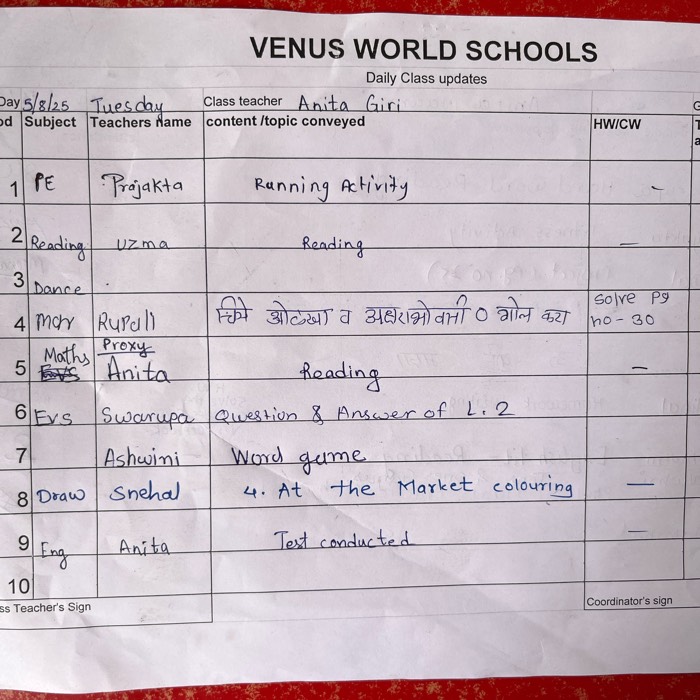 VENUS WORLD SCHOOLS
Daily Class updates
Day 5/8/25 Tuesday Class teacher Anita Giri
od Subject Teachers Name content /topic conveyed HW/CW
1 PE Prajakta Running Activity -
2 Reading Uzma Reading —
3 Dance
4 mar Rupali चित्रे ओळखा व अक्षराभोवती O गोल करा Solve Pg no - 30
5 Maths EVS Proxy Anita Reading —
6 Evs Swarupa Question & Answer of L. 2
7 Ashwini Word game
8 Draw Snehal 4. At the Market colouring —
9 Eng Anita Test conducted —
10
ss Teacher's Sign Coordinator's sign